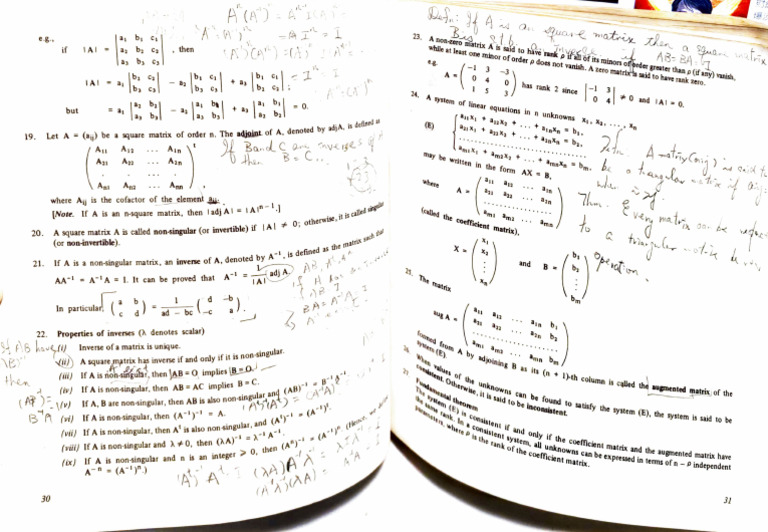 e.g.,
if |A| = | a₁ b₁ c₁ ; a₂ b₂ c₂ ; a₃ b₃ c₃ | , then
|A| = a₁ | b₂ c₂ ; b₃ c₃ | − a₂ | b₁ c₁ ; b₃ c₃ | + a₃ | b₁ c₁ ; b₂ c₂ | ;
but = a₁ | a₂ b₂ ; a₃ b₃ | − a₂ | a₁ b₁ ; a₃ b₃ | + a₃ | a₁ b₁ ; a₂ b₂ | = 0.
19. Let A = (aᵢⱼ) be a square matrix of order n. The adjoint of A, denoted by adjA, is defined as
( A₁₁ A₁₂ ... A₁ₙ
A₂₁ A₂₂ ... A₂ₙ
Aₙ₁ Aₙ₂ ... Aₙₙ )ᵗ
If B and C are inverses of A
then B = C.
where Aᵢⱼ is the cofactor of the element aᵢⱼ.
[Note. If A is an n-square matrix, then |adj A| = |A|ⁿ⁻¹.]
20. A square matrix A is called non-singular (or invertible) if |A| ≠ 0; otherwise, it is called singular
(or non-invertible).
21. If A is a non-singular matrix, an inverse of A, denoted by A⁻¹, is defined as the matrix such that
AA⁻¹ = A⁻¹A = I. It can be proved that A⁻¹ = 1/|A| adj A.
In particular, ( a b ; c d ) = 1/(ad − bc) ( d −b ; −c a ).
22. Properties of inverses (λ denotes scalar)
(i) Inverse of a matrix is unique.
(ii) A square matrix has inverse if and only if it is non-singular.
(iii) If A is non-singular, then AB = O implies B = O.
(iv) If A is non-singular, then AB = AC implies B = C.
(v) If A, B are non-singular, then AB is also non-singular and (AB)⁻¹ = B⁻¹A⁻¹
(vi) If A is non-singular, then (A⁻¹)⁻¹ = A.
(vii) If A is non-singular, then Aᵗ is also non-singular, and (Aᵗ)⁻¹ = (A⁻¹)ᵗ.
(viii) If A is non-singular and λ ≠ 0, then (λA)⁻¹ = λ⁻¹A⁻¹.
(ix) If A is non-singular and n is an integer ≥ 0, then (Aⁿ)⁻¹ = (A⁻¹)ⁿ (Hence, we
A⁻ⁿ = (A⁻¹)ⁿ.)
30
Defn: If A is an square matrix then a square matrix
B is s.t.b. an inverse if AB = BA = I
23. A non-zero matrix A is said to have rank ρ if all of its minors of order greater than ρ (if any) vanish,
while at least one minor of order ρ does not vanish. A zero matrix is said to have rank zero.
e.g.
A = ( −1 3 −3 ; 0 4 0 ; 1 5 3 ) has rank 2 since | −1 3 ; 0 4 | ≠ 0 and |A| = 0.
24. A system of linear equations in n unknowns x₁, x₂, ..., xₙ
(E) a₁₁x₁ + a₁₂x₂ + ... + a₁ₙxₙ = b₁,
a₂₁x₁ + a₂₂x₂ + ... + a₂ₙxₙ = b₂,
aₘ₁x₁ + aₘ₂x₂ + ... + aₘₙxₙ = bₘ
may be written in the form AX = B,
where A = ( a₁₁ a₁₂ ... a₁ₙ
a₂₁ a₂₂ ... a₂ₙ
aₘ₁ aₘ₂ ... aₘₙ )
(called the coefficient matrix),
X = ( x₁ x₂ ⋮ xₙ ) and B = ( b₁ b₂ ⋮ bₘ )
be a triangular matrix if
Thm: Every matrix can be
to a triangular matrix
operation.
25. The matrix
aug A = ( a₁₁ a₁₂ ... a₁ₙ b₁
a₂₁ a₂₂ ... a₂ₙ b₂
aₘ₁ aₘ₂ ... aₘₙ bₘ )
formed from A by adjoining B as its (n + 1)-th column is called the augmented matrix of the
system (E).
26. When values of the unknowns can be found to satisfy the system (E), the system is said to be
consistent. Otherwise, it is said to be inconsistent.
27. Fundamental theorem
The system (E) is consistent if and only if the coefficient matrix and the augmented matrix have
the same rank. In a consistent system, all unknowns can be expressed in terms of n − ρ independent
parameters, where ρ is the rank of the coefficient matrix.
31